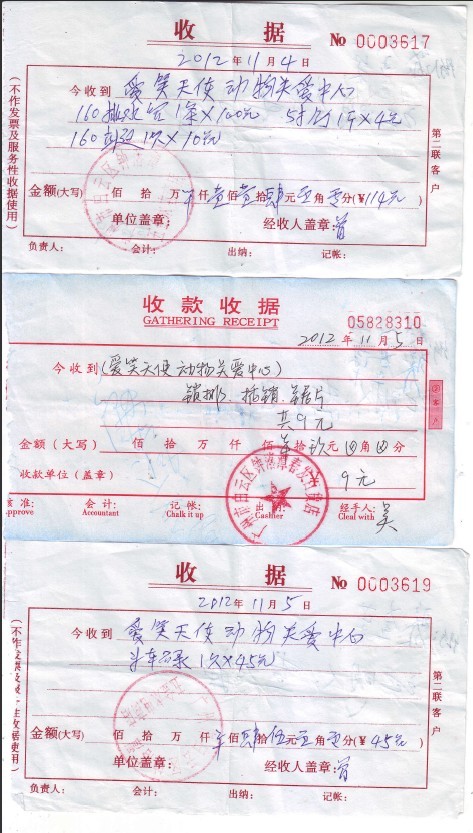 收 据 № 0003617
2012年11月4日
今收到 爱笑天使动物关爱中心
1条×100元 1个×4元
160 1次×10元
金额(大写) 佰 拾 万 仟壹佰壹拾肆元 角 分(¥114元)
单位盖章: 经收人盖章:曾
负责人: 会计: 出纳: 记帐:
(不作发票及服务性收据使用)
第二联客户
收款收据
GATHERING RECEIPT
05828310
2012年11月5日
今收到(爱笑天使动物关爱中心)
锁排、插销、锯片
共9元
金额(大写) 佰 拾 万 仟 佰 拾 玖元 角 分
收款单位(盖章) 9元
核准: 会计: 记帐: 出纳: 经手人:吴
Approve Accountant Chalk it up Cashier Cleal with
收 据 № 0003619
2012年11月5日
今收到 爱笑天使动物关爱中心
斗车 1次×45元
金额(大写) 佰 拾 万 仟 佰肆拾伍元 角 分(¥45元)
单位盖章: 经收人盖章:曾
负责人: 会计: 出纳: 记帐:
第二联客户